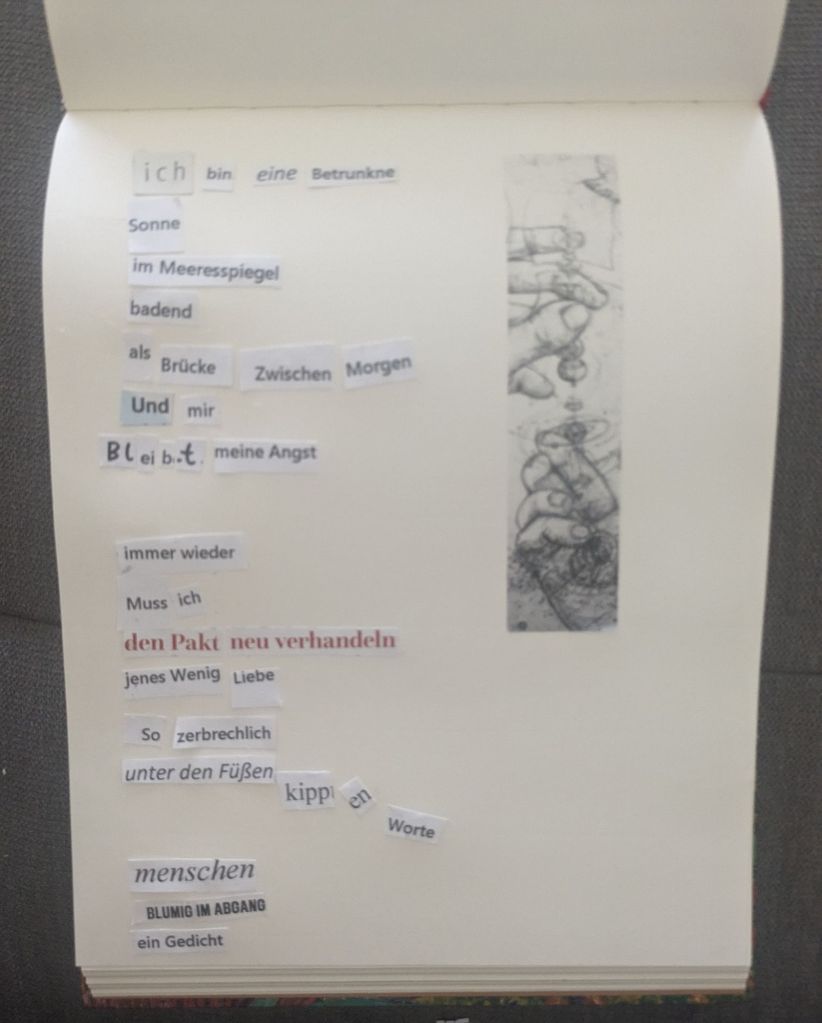 ich bin eine Betrunkne
Sonne
im Meeresspiegel
badend
als Brücke Zwischen Morgen
Und mir
Bleibt meine Angst
immer wieder
Muss ich
den Pakt neu verhandeln
jenes Wenig Liebe
So zerbrechlich
unter den Füßen
kippen
Worte
menschen
BLUMIG IM ABGANG
ein Gedicht